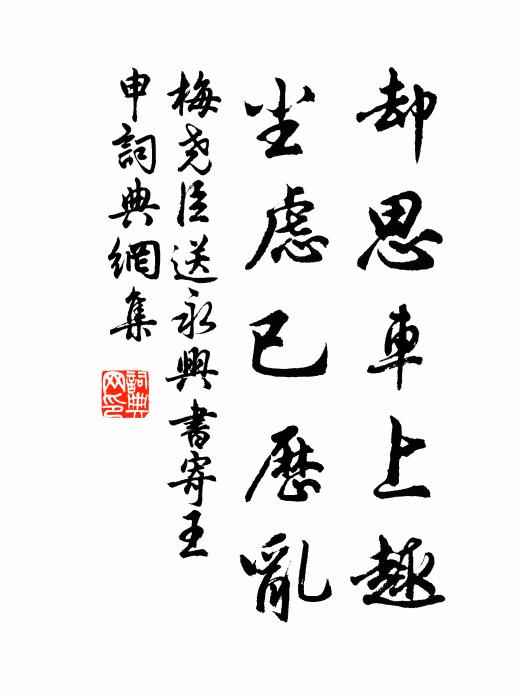 却思車上趣
尘慮已歷亂
梅尧臣送永興書寄王
申詞典網集
詞典
网印